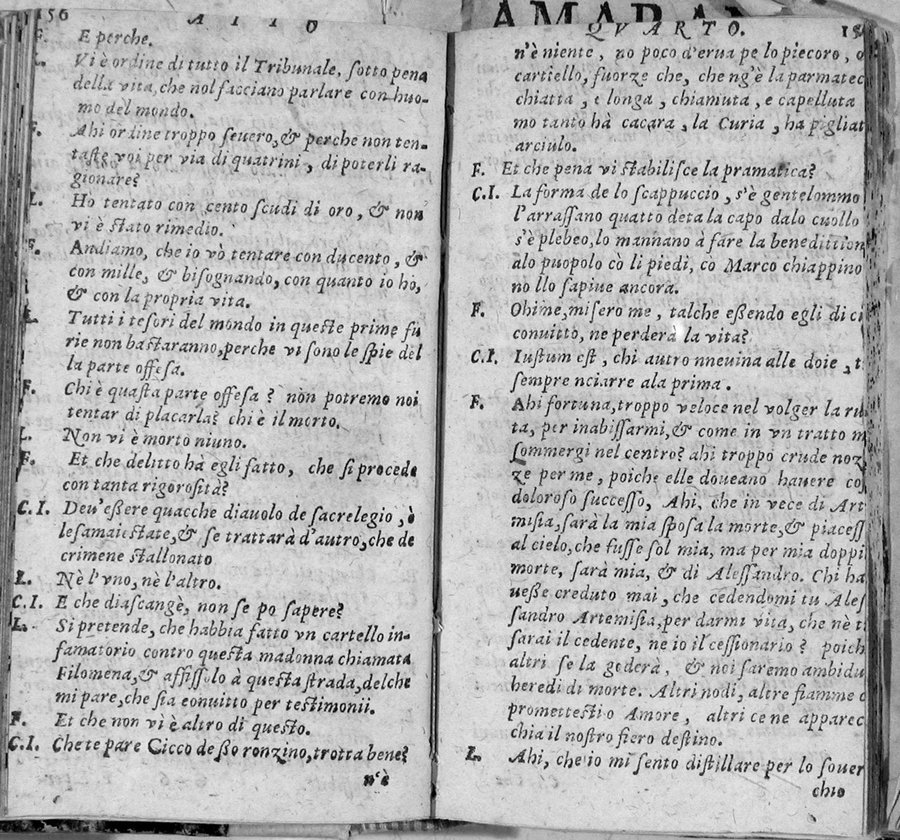 156 ATTO
F. E perche.
L. Vi è ordine di tutto il Tribunale, sotto pena
della vita, che nol facciano parlare con huo-
mo del mondo.
F. Ahi ordine troppo seuero, & perche non ten-
taste voi per via di quatrini, di poterli ra-
gionare?
L. Ho tentato con cento scudi di oro, & non
vi è stato rimedio.
F. Andiamo, che io vò tentare con ducento, &
con mille, & bisognando, con quanto io ho,
& con la propria vita.
L. Tutti i tesori del mondo in queste prime fu
rie non bastaranno, perche vi sono le spie del
la parte offesa.
F. Chi è quasta parte offesa? non potremo noi
tentar di placarla? chi è il morto.
L. Non vi è morto niuno.
F. Et che delitto hà egli fatto, che si procede
con tanta rigorosità?
C.I. Deu'eßere quacche diauolo de sacrelegio, ò
lesamaiestate, & se trattarà d'autro, che de
crimene stallonato
L. Nè l'vno, nè l'altro.
C.I. E che diascangè, non se po sapere?
L. Si pretende, che habbia fatto vn cartello in-
famatorio contro questa madonna chiamata
Filomena, & affissolo à questa strada, delche
mi pare, che sia conuitto per testimonii.
F. Et che non vi è altro di questo.
C.I. Che te pare Cicco deßo ronzino, trotta bene?
n'è
AMARAN
QVARTO. 15
n'è niente, no poco d'erua pe lo piecoro, o
cartiello, fuorze che, che ng'è la parmatec
chiatta, e longa, chiamuta, e capelluta
mo tanto hà cacara, la Curia, ha pigliat
arciulo.
F. Et che pena vi stabilisce la pramatica?
C.I. La forma de lo scappuccio, s'è gentelommo
l'arrassano quatto deta la capo dalo cuollo
s'è plebeo, lo mannano à fare la benedittion
alo puopolo cò li piedi, cò Marco chiappino
no llo sapiue ancora.
F. Ohime, misero me, talche eßendo egli di ci
conuitto, ne perderà la vita?
C.I. Iustum est, chi autro nneuina alle doie, t
sempre nciarre ala prima.
F. Ahi fortuna, troppo veloce nel volger la ru
ta, per inabissarmi, & come in vn tratto m
sommergi nel centro? ahi troppo crude noz
ze per me, poiche elle doueano hauere cos
doloroso successo, Ahi, che in vece di Art
misia, sarà la mia sposa la morte, & piacess
al cielo, che fusse sol mia, ma per mia doppi
morte, sarà mia, & di Alessandro. Chi ha
ueße creduto mai, che cedendomi tu Ales
sandro Artemisia, per darmi vita, che nè t
sarai il cedente, ne io il cessionario? poich
altri se la goderà, & noi saremo ambidu
heredi di morte. Altri nodi, altre fiamme
promettesti o Amore, altri ce ne apparec
chia il nostro fiero destino.
L. Ahi, che io mi sento distillare per lo souer
chio